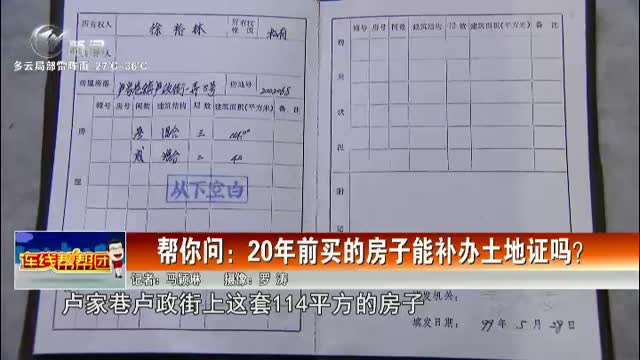 新闻
多云局部雷阵雨 27℃-36℃
所有权人 徐裕林 所有权性质 私有
房屋座落 卢家巷镇卢政街 号
幢号 房号 间数 建筑结构 层数 建筑面积(平方米) 备注
叁 混合 三
贰 混合 二 40
房
以下空白
幢号 房号 间数 建筑结构 层数 建筑面积(平方米) 备注
附
在线帮帮团
帮你问：20年前买的房子能补办土地证吗？
记者：马颖琳 摄像：罗 涛
卢家巷卢政街上这套114平方的房子
填发机关：
填发日期： 99 年 5 月 28 日